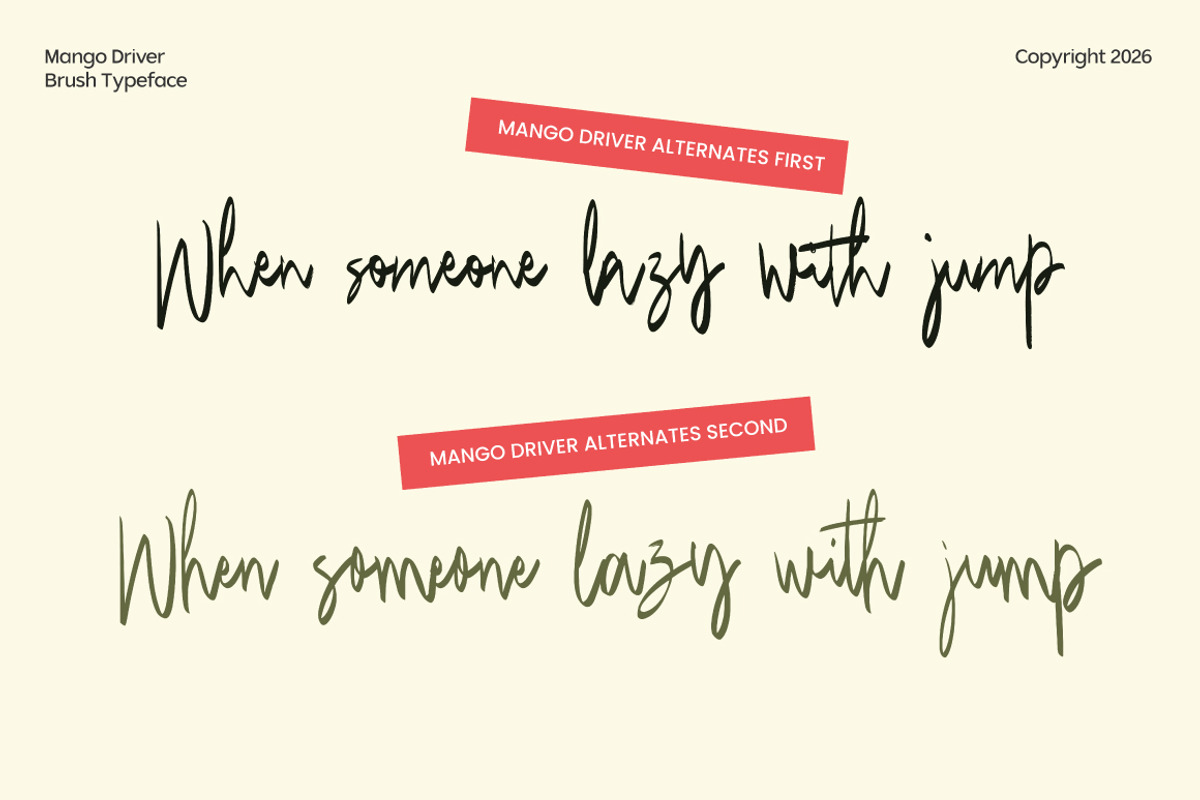 Mango Driver
Brush Typeface
Copyright 2026
MANGO DRIVER ALTERNATES FIRST
When someone lazy with jump
MANGO DRIVER ALTERNATES SECOND
When someone lazy with jump